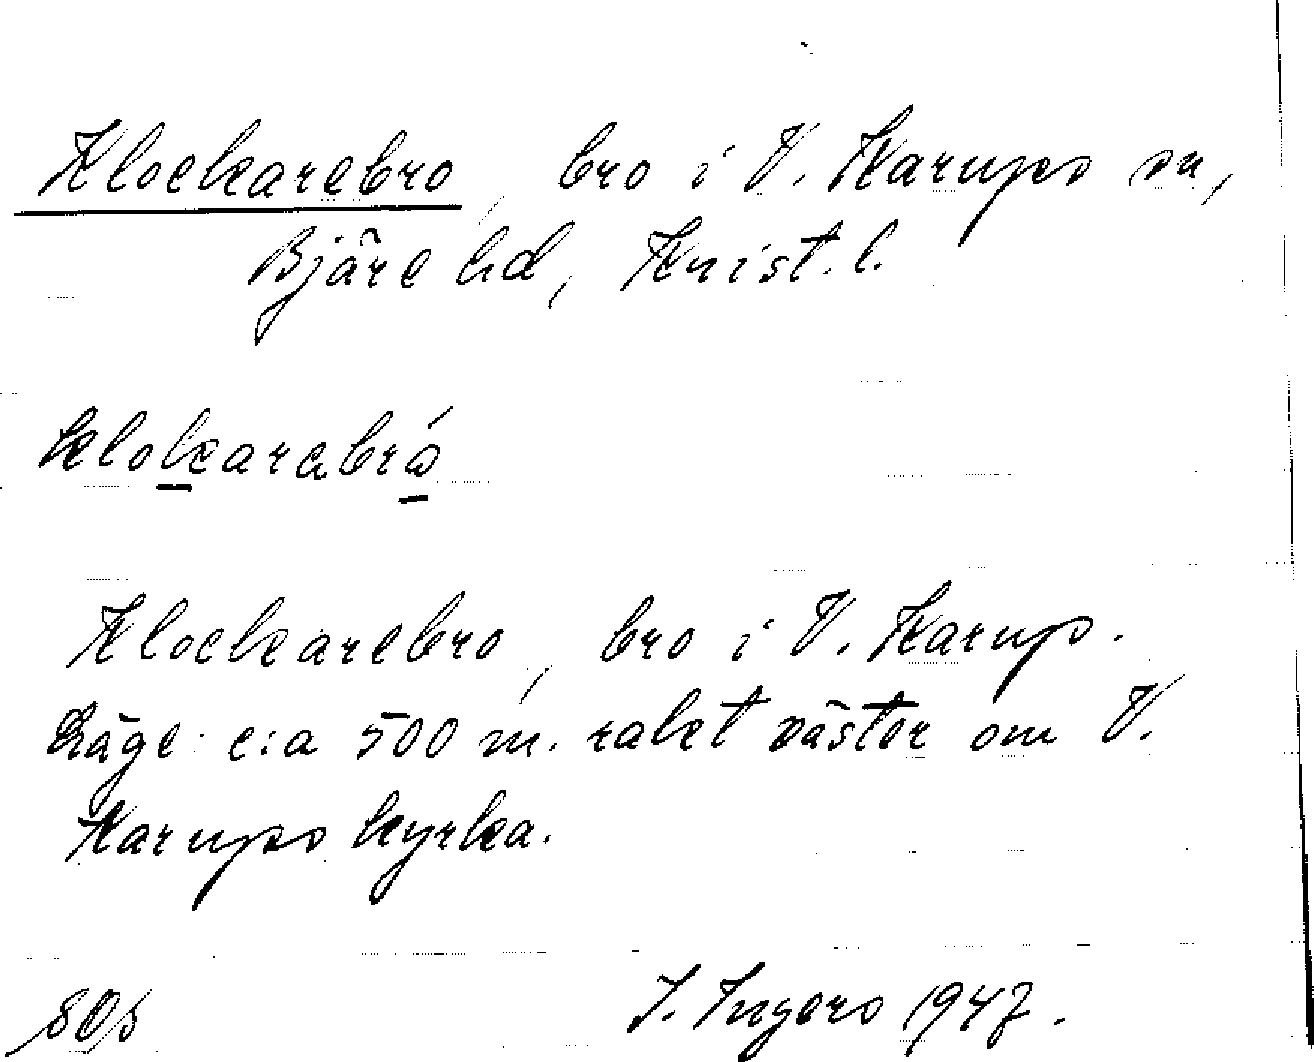 Klockarebro, bro i V. Karups sn,
Bjäre hd, Krist. l.
klokarabró
Klockarebro, bro i V. Karup.
Läge: c:a 500 m. rakt väster om V.
Karups kyrka.
I. Ingers 1947.